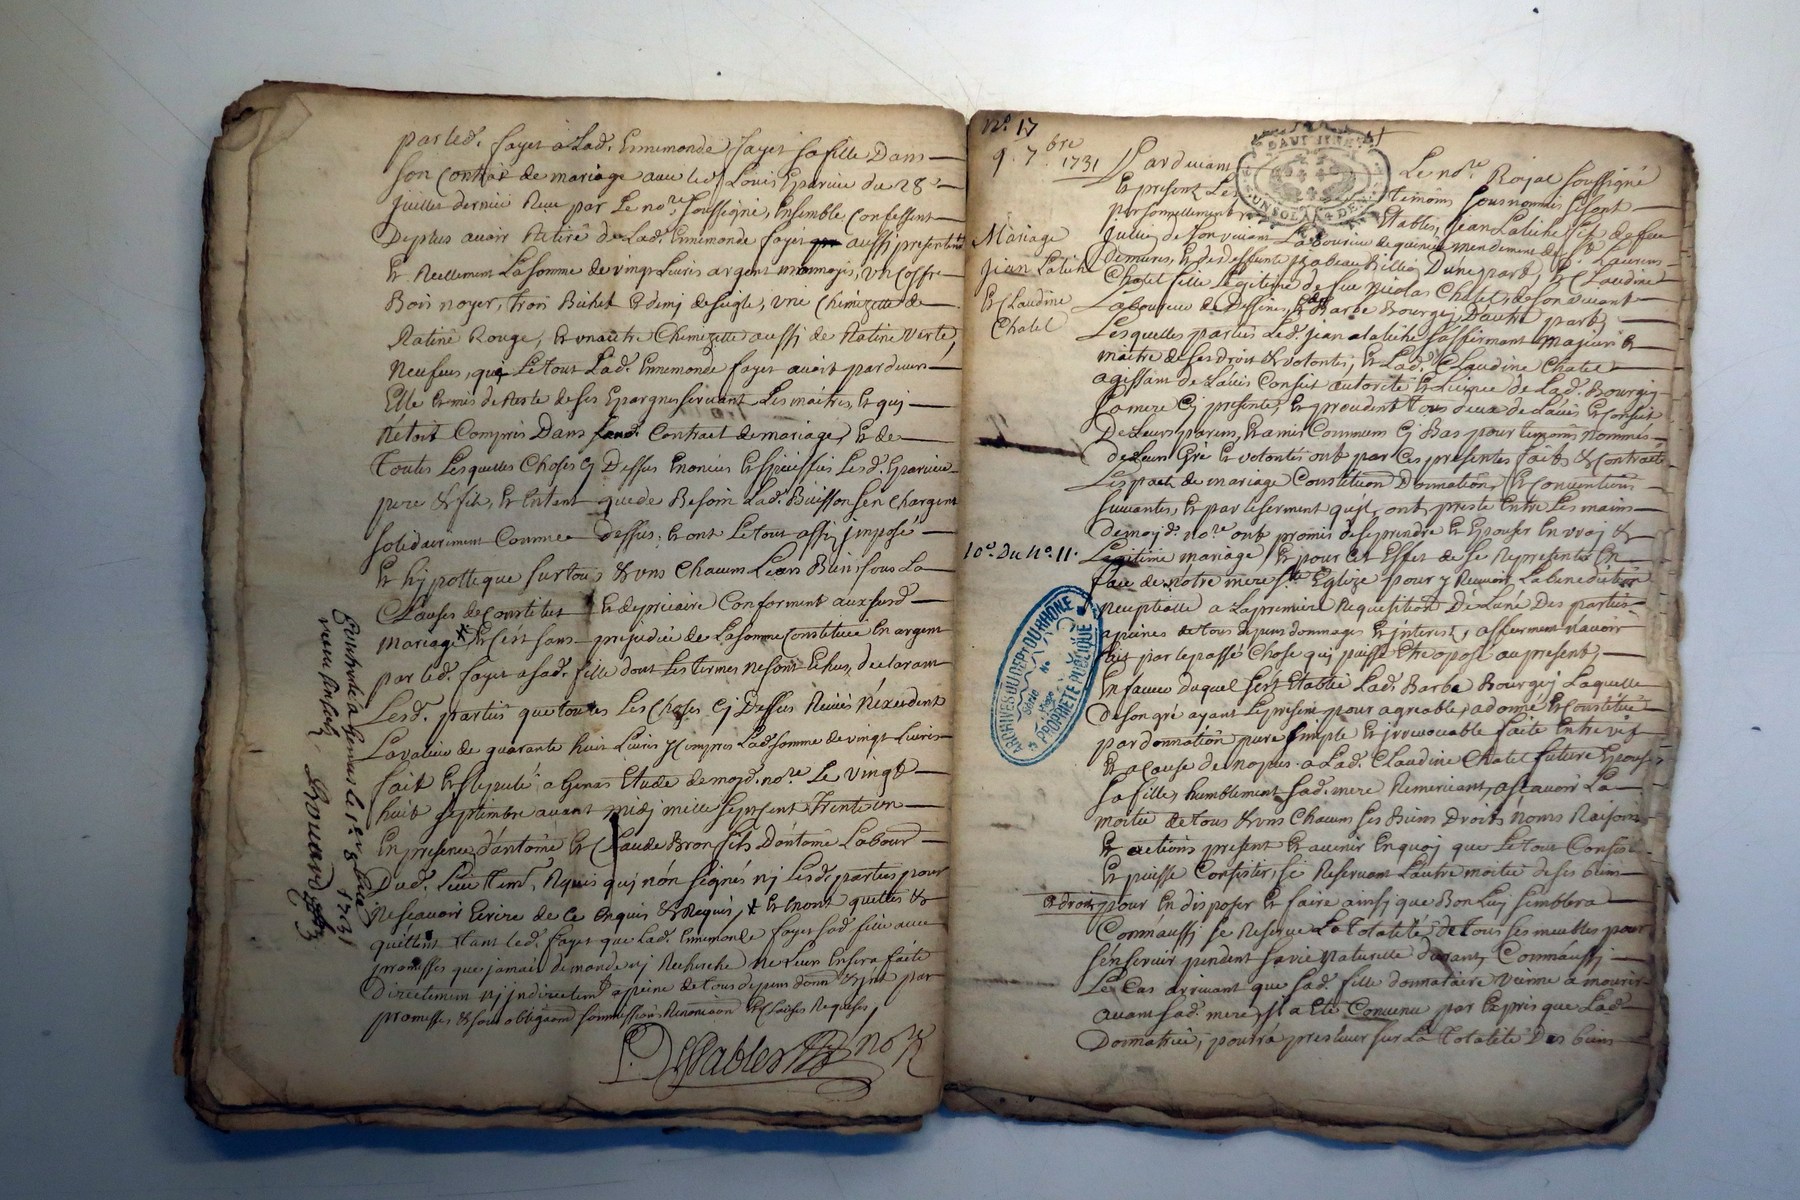 par led. fayet a Lad. Ennemonde fayet sa fille Dans
son Contrat de mariage avec led. Louis Eparvier du 28e
juillet dernier Receu par Le nore. soussigné, Ensemble Confessent
Deplus avoir Retiré de Lad. Ennemonde fayet aussi presente
Et Reellement La somme de vingt Livres argent monnoyé, un Coffre
Bois noyer, trois Bichet Et demj de seigle, une Chemizette de
Ratine Rouge, Et un autre Chemizette aussi de Ratine verte,
neufves, que Le tout Lad. Ennemonde fayet avoit pardevers
Elle Et mis de Reste de ses Epargnes servant Les maitres, Et quj
n'étoit Compris Dans Contract de mariage, Et de
Toutes Lesquelles Choses Cj Dessus Enoncés Et Spécifiés Lesd. Eparvier
pere & fils, Et Entent que de Besoin Lad. Buisson sen Chargent
solidairement Comme dessus, Et ont Le tout assi, imposé
Et hypotteque sur tous & uns Chacuns Leurs Biens sous La
Clauses de Constitut Et de precaire Conforment auxsusd
mariage Et C'est sans prejudice de La somme Constituée En argent
par led. fayet asad. fille dont Les termes ne sont Echus, declarant
Lesd. parties que toutes Les Choses Cj Dessus n'exedent
La valeur de quarante huit Livres y Compris Lad. somme de vingt Livres
fait Et stipulé a Genas Etude de mojd. nore. Le vingt
huit septembre avant midj mille sept sent trente un
En presence d'antoine Et Claude Bron fils D'antoine Labour
Dud. Lieu tem., Requis quj n'on signés nj Lesd. parties pour
ne scavoir Ecrire de Ce Enquis & Requis, Et L'en ont quittés &
quittent tant led. fayet que Lad. Ennemonde fayet sad. fille avec
promesses que jamais demande nj Recherche ne Leur En sera faite
Directement nj jndirectemt. a peine de tous depens domm. & jnt. par
promesses, & sous obligaõns soumissions Renonciaõn Et Clauses Requises,
nore
Controllé a
1731
No. 17
9. 7.bre 1731
Mariage
jean Latiche
Et Claudine
Chatel
10e. Du No. 11.
DAUPHINE
UN SOL 4 DE
Pardevant Le nore. Roïal soussigné
Et present Les temoins sousnommés, sesont
personnellement Etablis, jean Latiche fils de feu
Julien de son vivant Laboureur de mendement de St. Laurens
Demures, Et de deffunte D'une part, Et Claudine
Chatel fille Légitime de feu Nicolas Chatel, de son vivant
Laboureur de Dessines, Et de Barbe Bourgej D'autre part,
Lesquelles parties Led. jean Latiche saffirmant Majeur &
maitre de ses droits & volontés, Et Lad. Claudine Chatel
agissant de L'avis Conseil autorité Et Licence de Lad. Bourgej
sa mere Cj presente, Et procedent tous deux de L'avis Et Conseil
De Leurs parens, Et amis Communs Cj Bas pour temoins nommés
de Leur Gré Et volontés ont par Ces presentes fait & Contracté
Les pact de mariage Constitution Donnations, Et Conventions
suivantes, Et par le serment qu'jl, ont presté Entre Les mains
de mojd. nore. ont promis de se prendre Et Epouser En vraj &
Legitime mariage, Et pour Cet Effet de se Represente En
face de notre mere ste. Eglize pour y Recevoir La benediction
neuptialle a La premiere Requisition De L'une Des parties
apeines de tous depens dommages Et interest, affirment n'avoir
fait par le passé Chose quj puisse Etre oposé au present,
En faveur duquel sest Etablie Lad. Barbe Bourgej Laquelle
De son gré ayant Le present pour agreable, a donné Et Constitué
par donnation pure simple Et jrrevocable faite Entre vif
Et a Cause de nopces a Lad. Claudine Chatel future Epouse
sa fille, humblement sad. mere Remerciant, ascavoir La
moitié de tous & uns Chacuns ses Biens Droits Noms Raisons
Et actions present Et avenir En quoj que Le tout Consiste
Et puisse Consister, se Reservant L'autre moitié de ses biens
& droits pour En disposer Et faire ainsj que Bon Luy semblera
Comm'aussi se Reserve La totalité de tous ses meubles pour
s'en servir pendent sa vie naturelle durant, Comm'aussi
Le Cas arrivant que sad. fille donnataire vienne a mourir
avant sad. mere jl a Eté Convenu par Exprés que Lad.
Donnatrice, pourra prelever sur La totalité Des biens
ARCHIVES DU DEPT DU RHÔNE
Série
No
Page
PROPRIÉTÉ PUBLIQUE